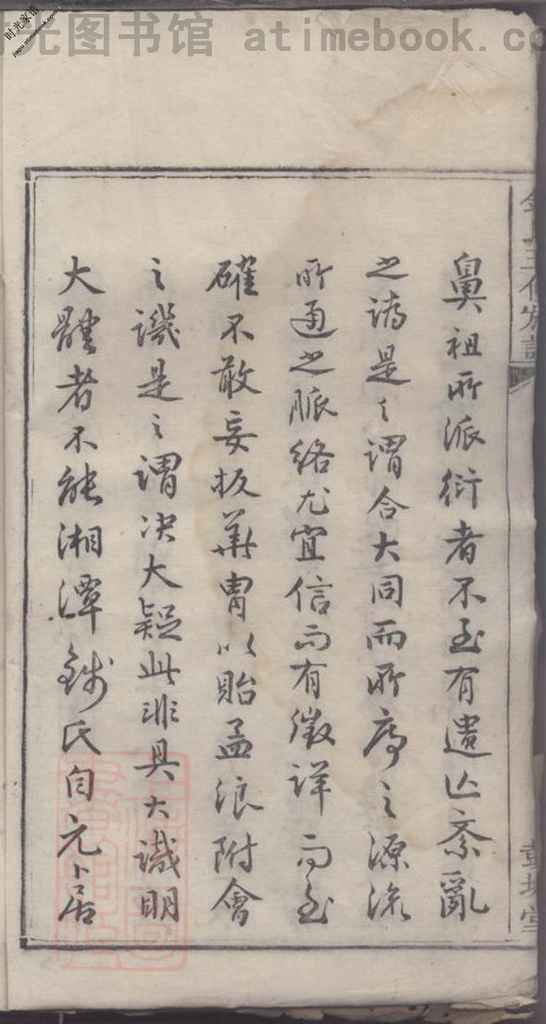 光图书馆 atimebook.co
时光家谱
鼻祖所派衍者不至有遺亡紊亂
之譏是之謂合大同而所序之源流
所通之脈絡尤宜信而有徵詳而至
確不敢妄扳華胄以貽孟浪附會
之譏是之謂决大疑此非具大識明
大體者不能湘潭錢氏自元卜居
彭城堂